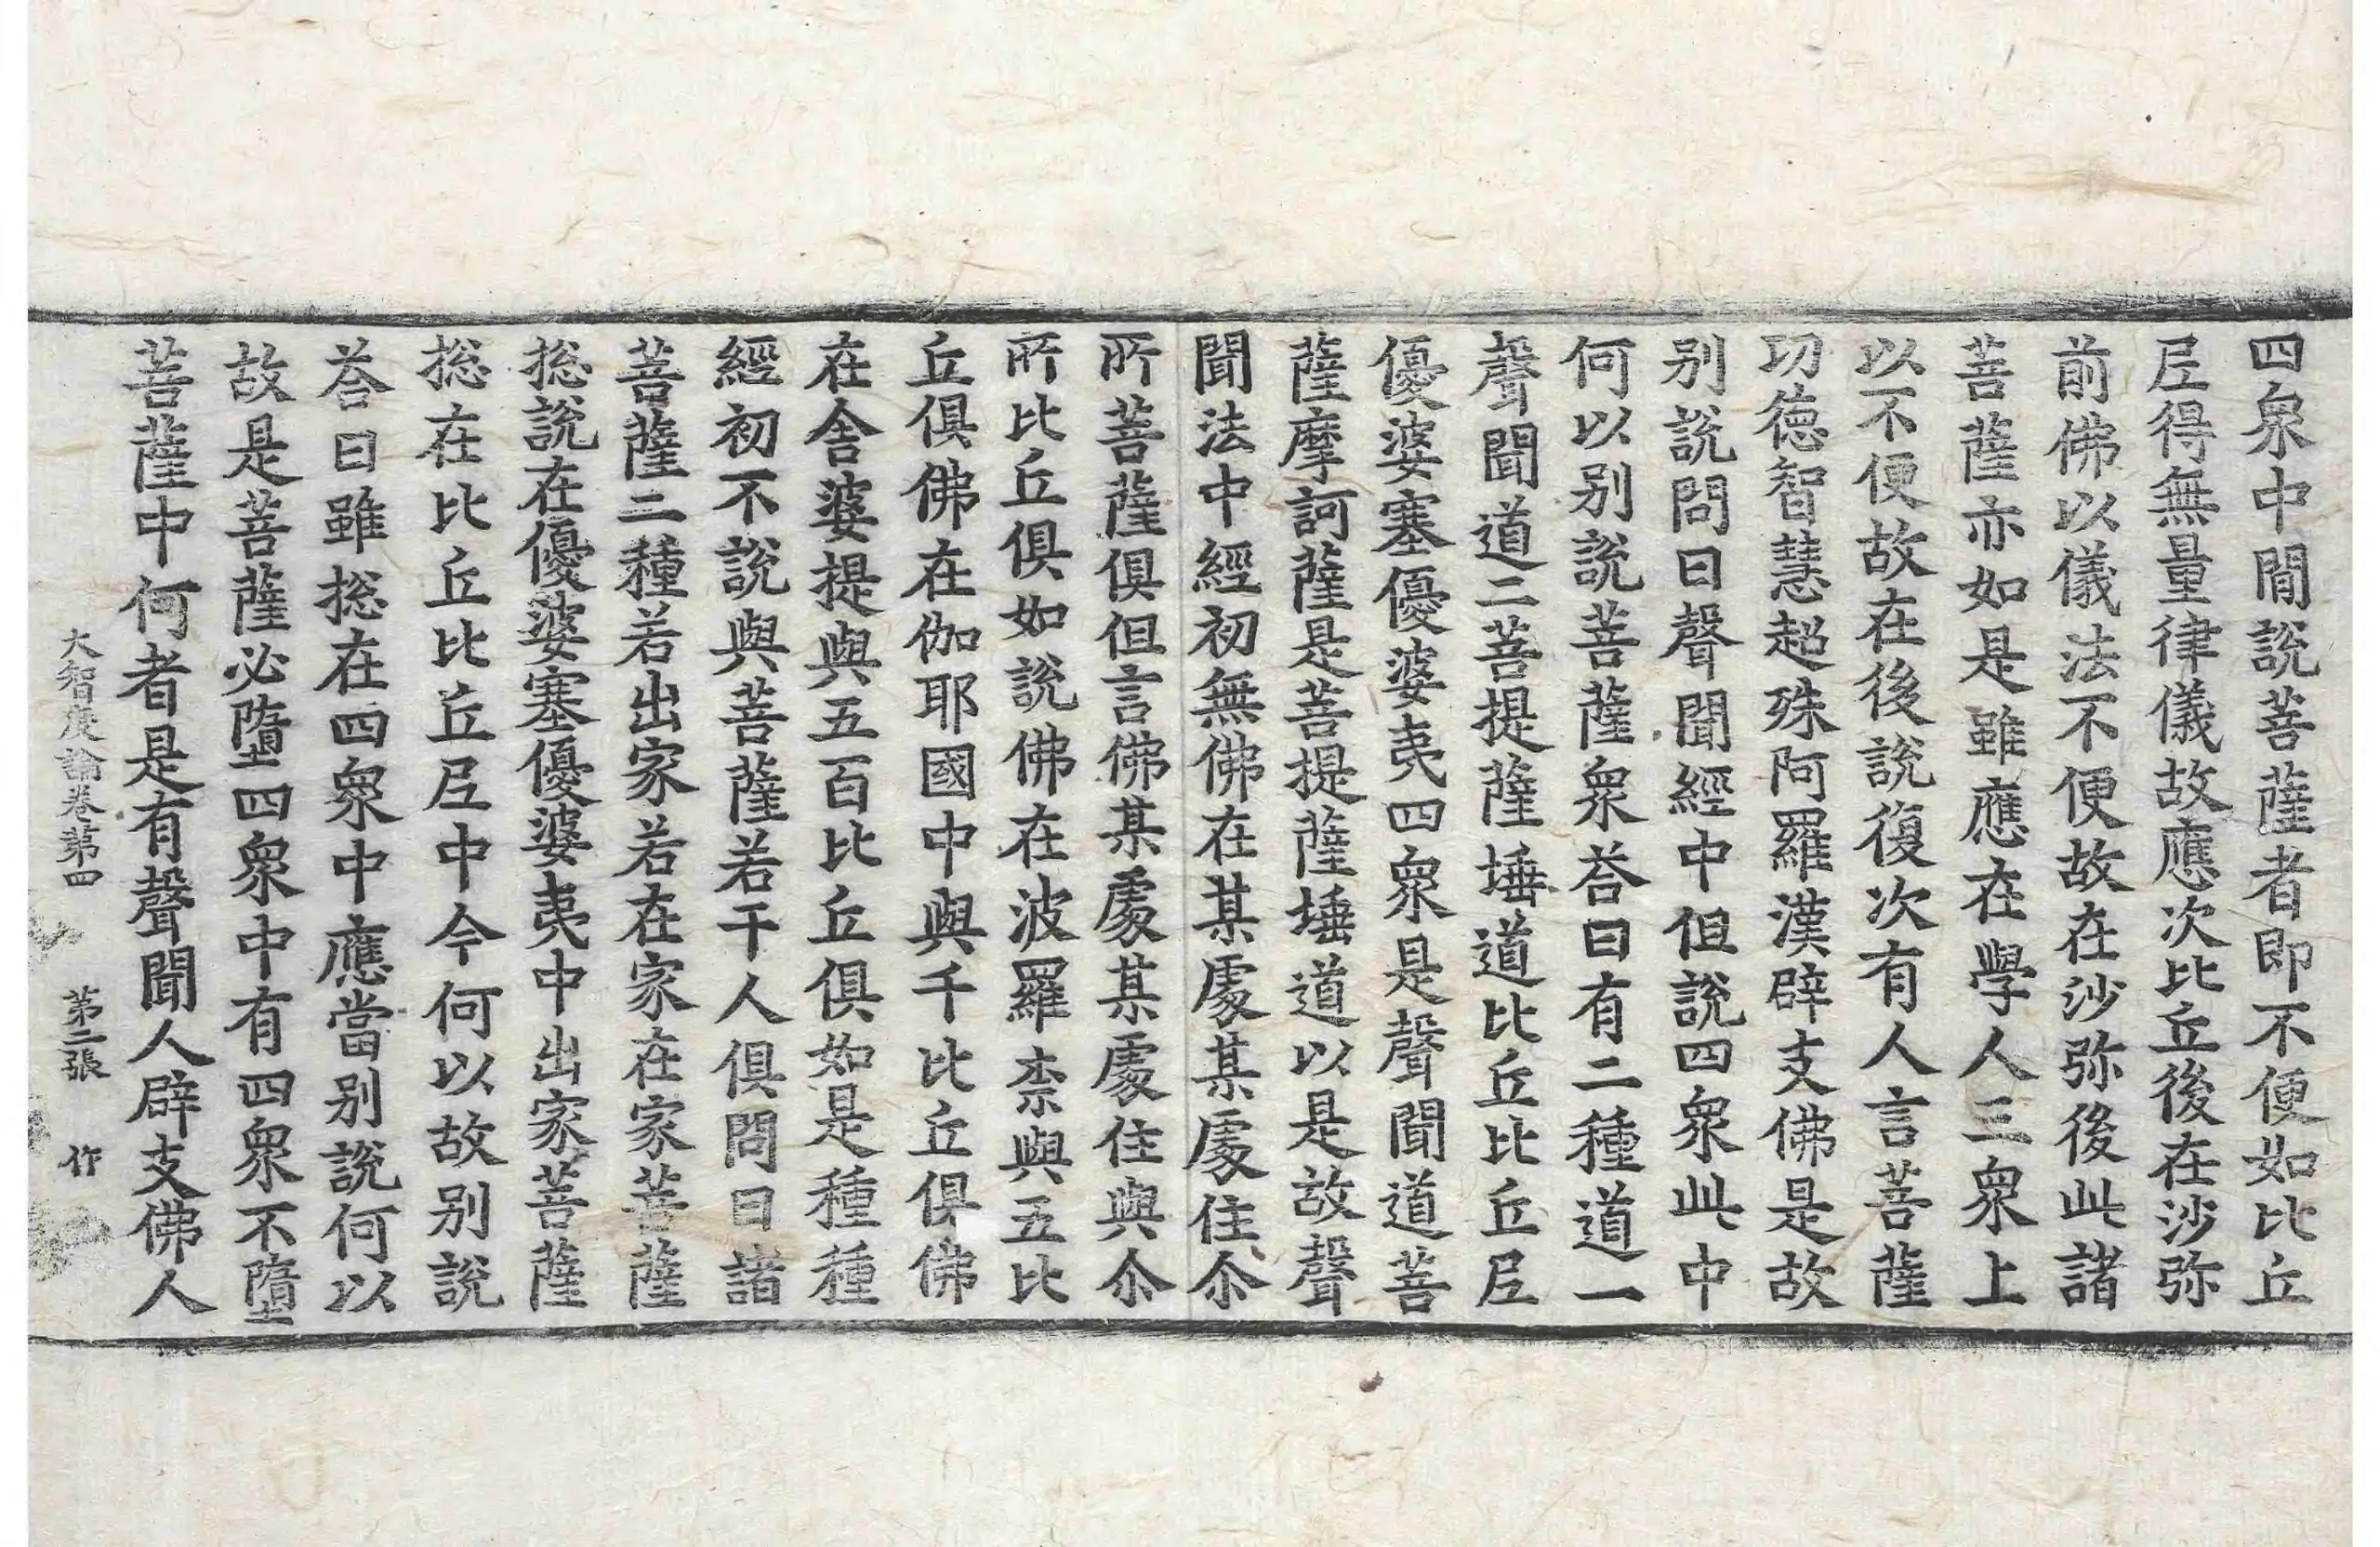 四衆中閒說菩薩者即不便如比丘
尼得無量律儀故應次比丘後在沙弥
前佛以儀法不便故在沙弥後此諸
菩薩亦如是雖應在學人三衆上
以不便故在後說復次有人言菩薩
功德智慧超殊阿羅漢辟支佛是故
别說問曰聲聞經中但說四衆此中
何以别說菩薩衆荅曰有二種道一
聲聞道二菩提薩埵道比丘比丘尼
優婆塞優婆夷四衆是聲聞道菩
薩摩訶薩是菩提薩埵道以是故聲
聞法中經初無佛在某處某處住尒
所菩薩俱但言佛某處某處住與尒
所比丘俱如說佛在波羅柰與五比
丘俱佛在伽耶國中與千比丘俱佛
在舍婆提與五百比丘俱如是種種
經初不說與菩薩若干人俱問曰諸
菩薩二種若出家若在家在家菩薩
捴說在優婆塞優婆夷中出家菩薩
捴在比丘比丘尼中今何以故别說
荅曰雖捴在四衆中應當别說何以
故是菩薩必墮四衆中有四衆不墮
菩薩中何者是有聲聞人辟支佛人
大智度論卷第四 第二張 作